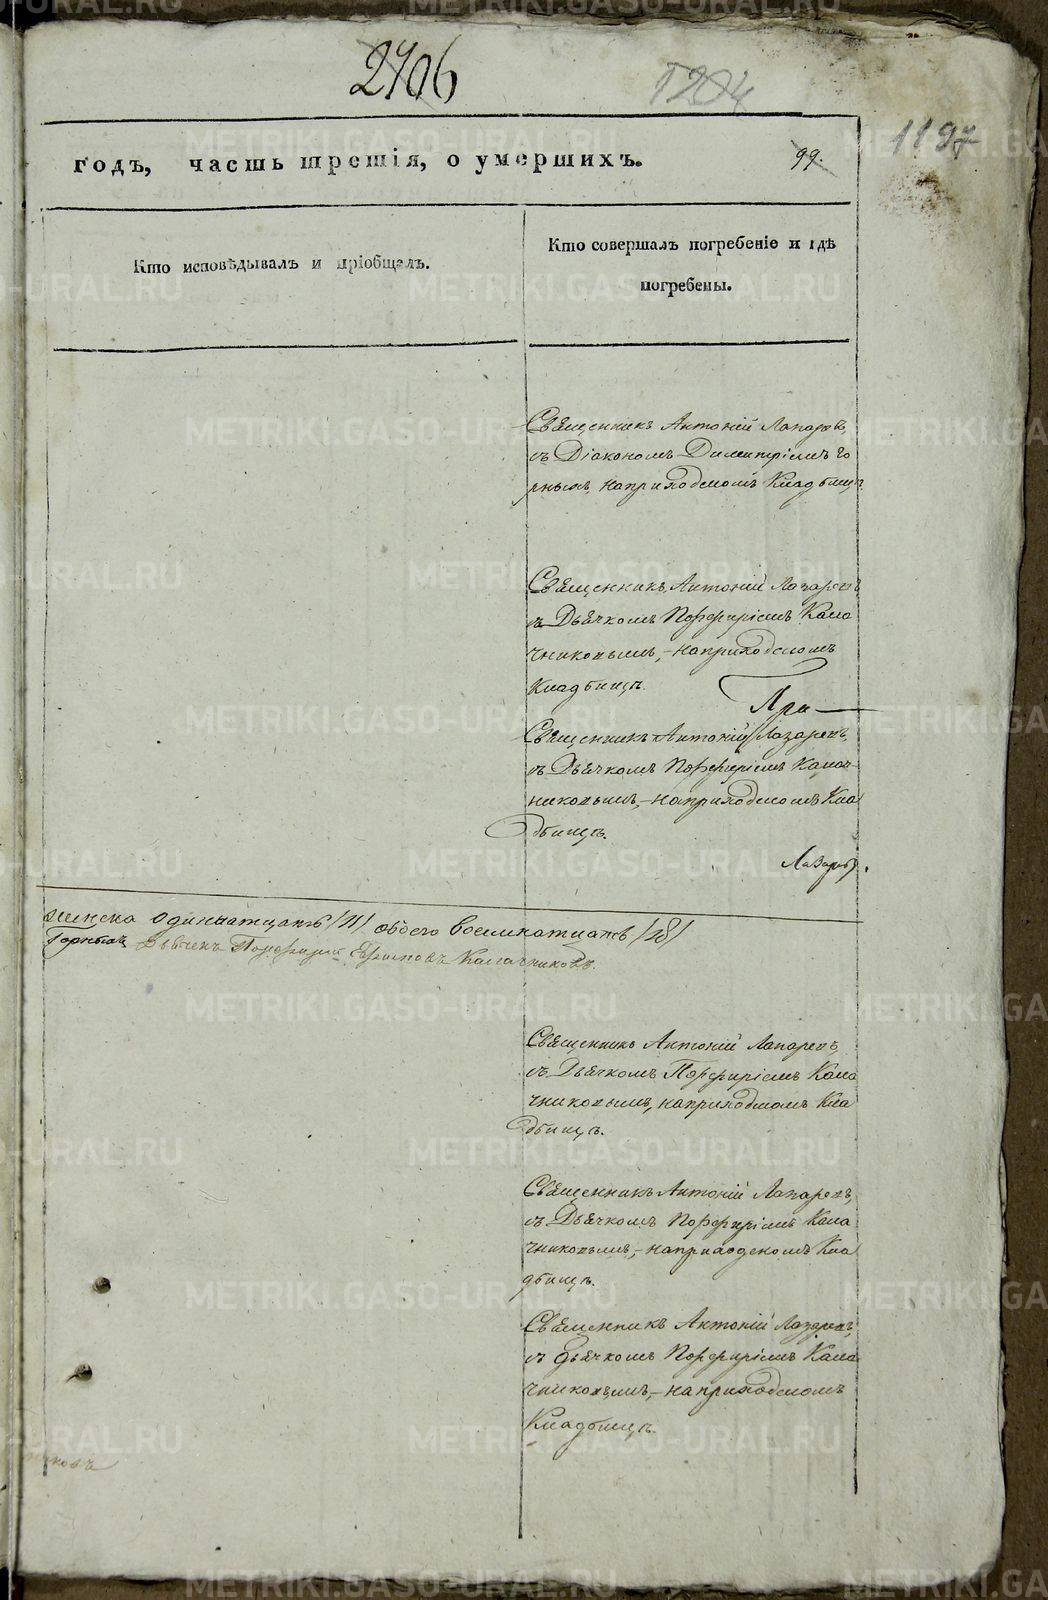 2406
1204
1197
годъ, часть третія, о умершихъ.
99.
Кто исповѣдывалъ и пріобщалъ.
Кто совершалъ погребеніе и гдѣ
погребены.
Священникъ Антоній Лазаревъ,
съ Діакономъ Димитріемъ Го
рнымъ, наприходскомъ Кладбищѣ
Священникъ Антоній Лазаревъ
съ Дьячкомъ Порфиріемъ Кала
чниковымъ,-наприходскомъ
Кладбищѣ.
При
Священникъ Антоній Лазаревъ,
съ Дьячкомъ Порфиріемъ Калач-
никовымъ,-наприходскомъ Кла
дбищѣ.
Лазаревъ.
женска одиннатцать /11/ обоего восемнатцать /18/
Горныхъ Дьячекъ Порфирій Калачниковъ.
Священникъ Антоній Лазаревъ,
съ Дьячкомъ Порфиріемъ Кала
чниковымъ, наприходскомъ Кла
дбищѣ.
Священникъ Антоній Лазаревъ,
съ Дьячкомъ Порфиріемъ Кала
чниковымъ,-наприходскомъ Кла
дбищѣ.
Священникъ Антоній Лазаревъ,
съ дьячкомъ Порфиріемъ Кала
чниковымъ,-наприходскомъ
Кладбищѣ.
никовъ
METRIKI.GASO-URAL.RU